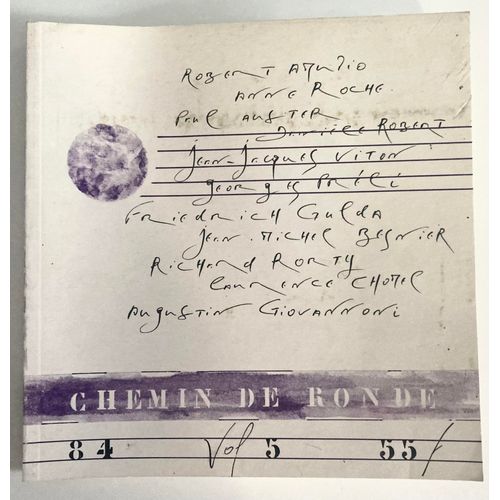 Robert Amutio
Anne Roche
Paul Auster
Danièle Robert
Jean-Jacques Viton
Georges Préli
Friedrich Gulda
Jean-Michel Besnier
Richard Rorty
Laurence Chomel
Augustin Giovannoni
CHEMIN DE RONDE
84 Vol 5 55f